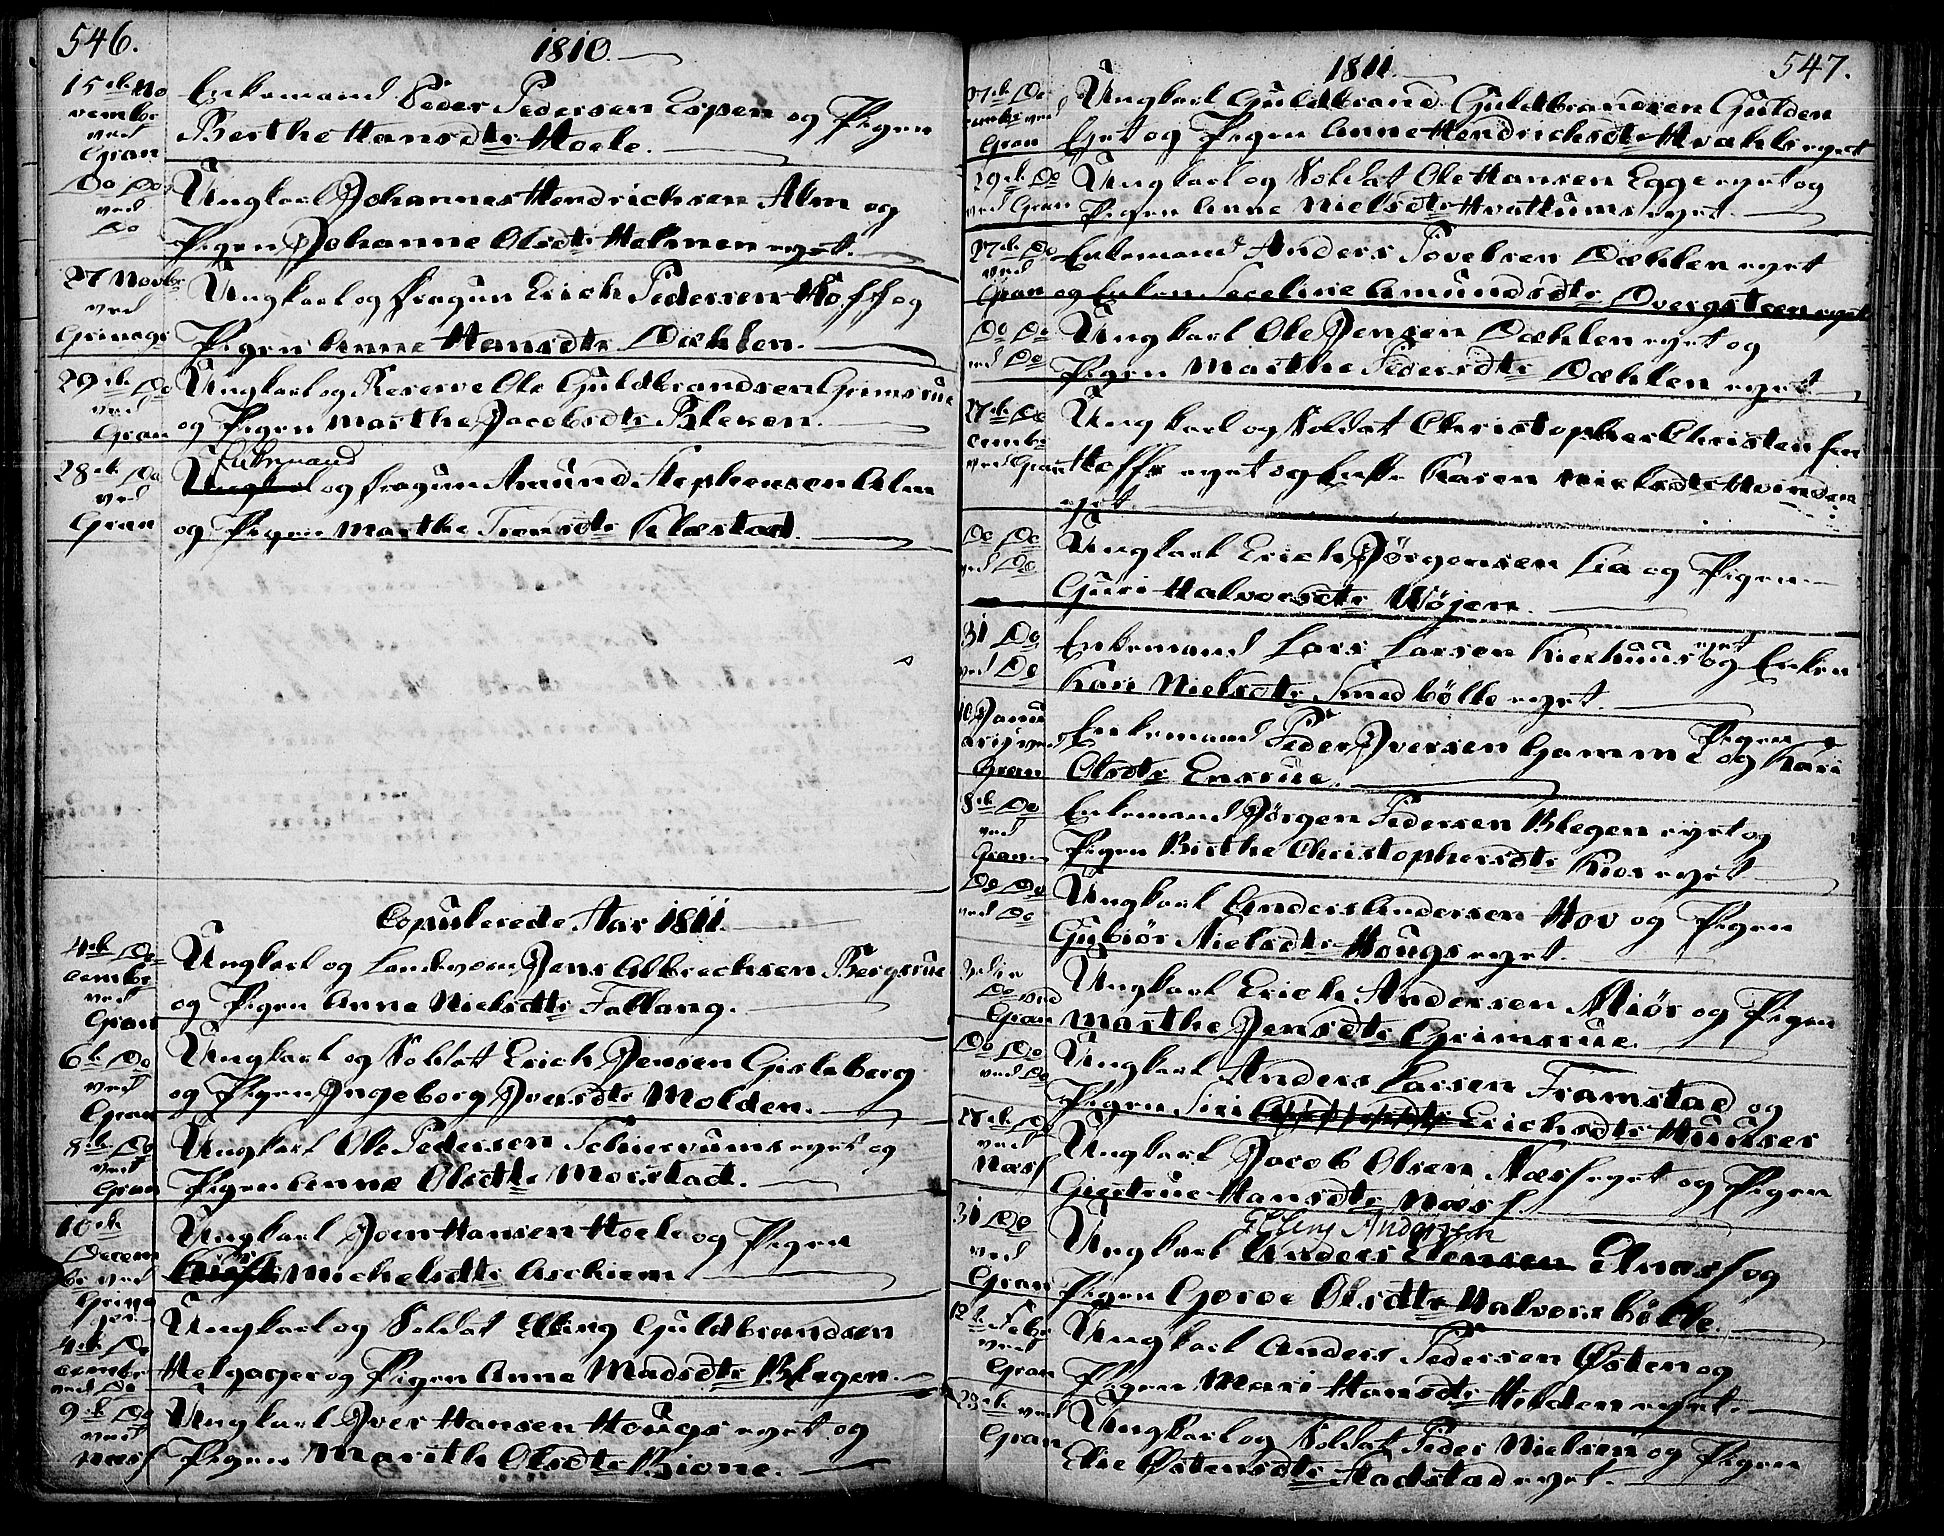 546.
1810.
15de No
vembr
ved
Gran
Enkemand Peder Pedersen Espen og Pigen
Berthe Hansdtr Hoele.
Do Do
ved
Do
Ungkarl Johannes Hendrichsen Alm og
Pigen Johanne Olsdtr Helmen eyet.
27 Novbr
ved
Grinager
Ungkarl og Dragun Erich Pedersen Hoff og
Pigen Anne Hansdtr Dæhlen.
29de Do
ved
Gran
Ungkarl og Reserve Ole Guldbrandsen Grimsrue
og Pigen Marthe Jacobsdtr Bleken.
28de Do
ved
Gran
Enkemand
Ungkarl og Dragun Amund Stephensen Alm
og Pigen Marthe Tronsdtr Klæstad.
Copulerede Aar 1811.
4de De
cembr
ved
Gran
Ungkarl og Landvern Jens Albrechsen Bergsrue
og Pigen Anne Nielsdtr Fallang.
6te Do
ved
Gran
Ungkarl og Soldatt Erich Jensen Gisleberg
og Pigen Ingeborg Iversdtr Molden.
8de Do
ved
Gran
Ungkarl Ole Pedersen Schiervums eyet og
Pigen Anne Olsdtr Morstad.
10de
Decem
br ved
Grina
ger
Ungkarl Joen Hansen Hoele og Pigen
Michelsdtr Aschiem
4de De
cembr
ved Do
Ungkarl og Soldat Elling Guldbrandsen
Helgager og Pigen Anne Madsdtr Blegen.
9de Do
ved
Næss
Ungkarl Iver Hansen Hougs eyet og
Pigen Marithe Olsdtr Bione.
547.
1811.
27de De
cembr ved
Gran
Ungkarl Guldbrand Guldbrandsen Gulden
Eyet og Pigen Anne Hendrichsdtr Hvahls eyet
29de Do
ved Gran
Ungkarl og Soldat Ole Hansen Egge eyet og
Pigen Anne Nielsdtr Hvattums eyet.
27de Do
ved
Gran
Enkemand Anders Povelsen Dæhlen eyet
og Enken Siceline Amundsdtr Dvergsteen eyet
Do Do
ved Do
Ungkarl Ole Jensen Dæhlen eyet og
Pigen Marthe Pedersdtr Dæhlen eyet.
27de De
cembr
ved Gran
Ungkarl og Soldat Christopher Christensen
Hoffs eyet og Enke Karen Nielsdtr Hvinden
eyet
Do Do
ved Do
Ungkarl Erich Jørgensen Lia og Pigen
Guri Halvorsdtr Wøjen.
31 Do
ved Do
Enkemand Lars Larsen Kierhuus eyet og Enken
Kari Nielsdtr Smedbølle eyet.
10 Janu
arij ved
Gran
Enkemand Peder Iversen Gamme og Pigen Kari
Olsdtr Ensrue.
8de Do
ved
Gran
Enkemand Jørgen Pedersen Blegen eyet og
Pigen Birthe Christophersdtr Kios eyet
Do Do
ved Do
Ungkarl Anders Andersen Hov og Pigen
Gubiør Nielsdtr Hougs eyet.
Do ved
Gran
Ungkarl Erich Andersen Miør og Pigen
Marthe Jensdtr Grimsrue.
Do Do
ved Do
Ungkarl Anders Larsen Framstad og
Pigen Siri Erichsdtr Hunser
27de Do
ved
Næss
Ungkarl Jacob Olsen Næss eyet og Pigen
Giertrue Hansdtr Næss
31 Do
ved
Gran
Elling Andersen
Ungkarl Anders Elensen Elnæss og
Pigen Gorve Olsdtr Halvorsbølle.
12te Febr
ved
Gran
Ungkarl Anders Pedersen Østen og
Pigen Mari Hansdtr Helden eyet.
23de ved
Gran
Ungkarl og Soldat Peder Nielsen og Pigen
Elie Østensdtr Stadstad eyet.